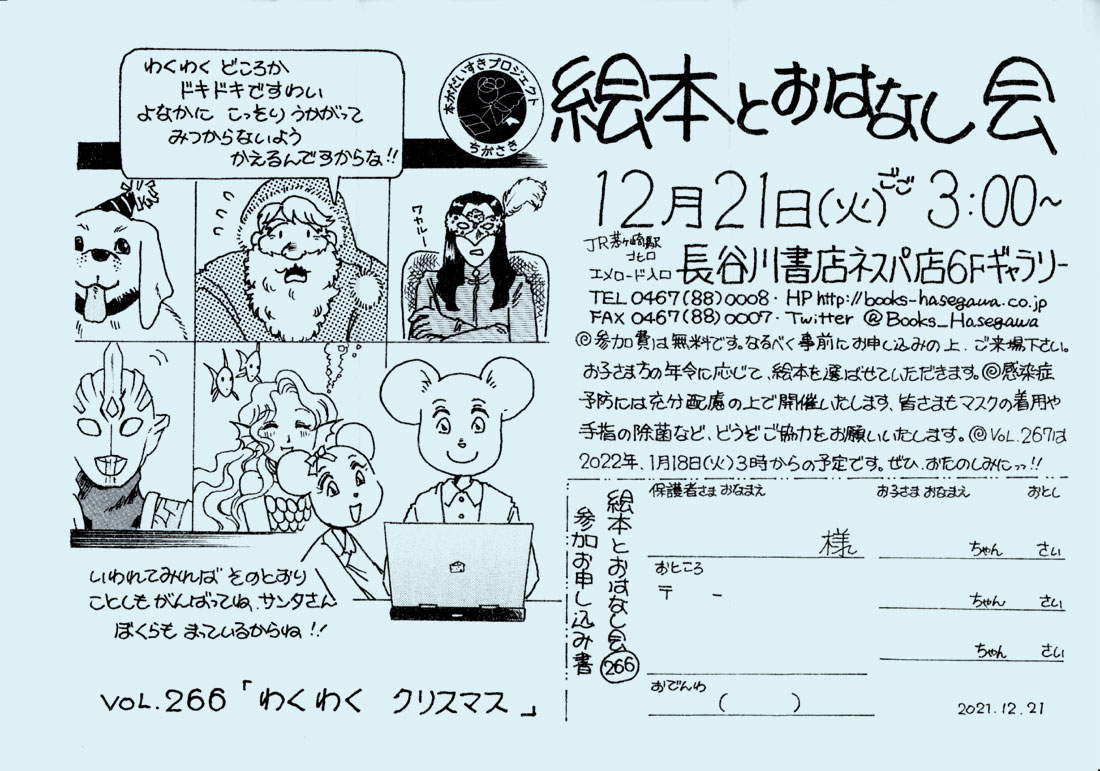 わくわく どころか
ドキドキですわい
よなかに こっそり うかがって
みつからないよう
かえるんですからな!!
本がだいすきプロジェクト
ちがさき
ワカルー
いわれてみれば そのとおり
ことしも がんばってね、サンタさん
ぼくらも まっているからね!!
VOL.266「わくわく クリスマス」
絵本とおはなし会
12月21日(火)ごご3:00~
JR茅ヶ崎駅
北口
エメロード入口 長谷川書店ネスパ店6Fギャラリー
TEL 0467(88)0008・HP http://books-hasegawa.co.jp
FAX 0467(88)0007・Twitter @Books_Hasegawa
◎参加費は無料です。なるべく事前にお申し込みの上、ご来場下さい。
お子さま方の年令に応じて、絵本を選ばせていただきます。◎感染症
予防には充分配慮の上で開催いたします、皆さまもマスクの着用や
手指の除菌など、どうぞご協力をお願いいたします。◎VOL.267は
2022年、1月18日(火)3時からの予定です。ぜひ、おたのしみにっっ!!
絵本とおはなし会266
参加お申し込み書
保護者さま おなまえ
お子さま おなまえ おとし
様
ちゃん さい
おところ
〒 -
ちゃん さい
ちゃん さい
おでんわ
( )
2021.12.21